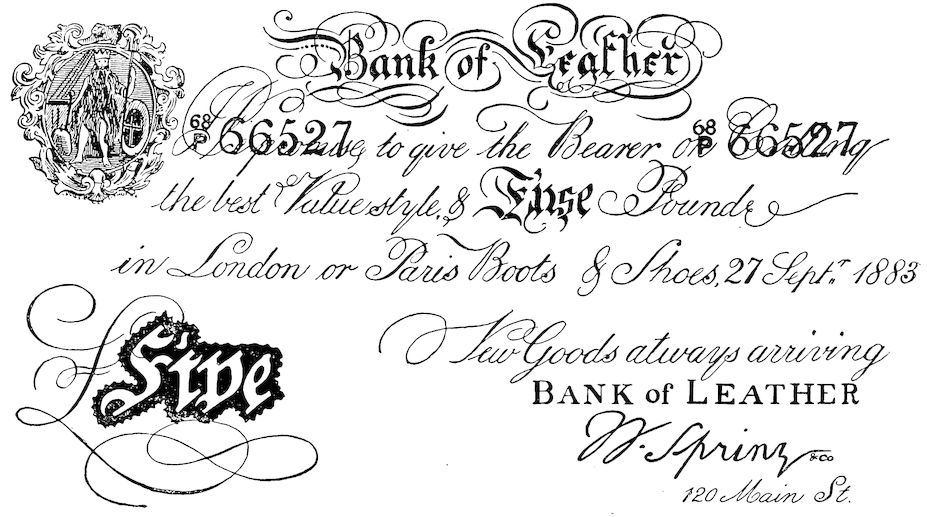 Bank of Leather
68/P 66527 68/P 66527
promise to give the Bearer on
the best Value style, & Pounds
in London or Paris Boots & Shoes, 27 Septr 1883
Five
New Goods always arriving
BANK of LEATHER
W. Spring & Co
120 Main St.